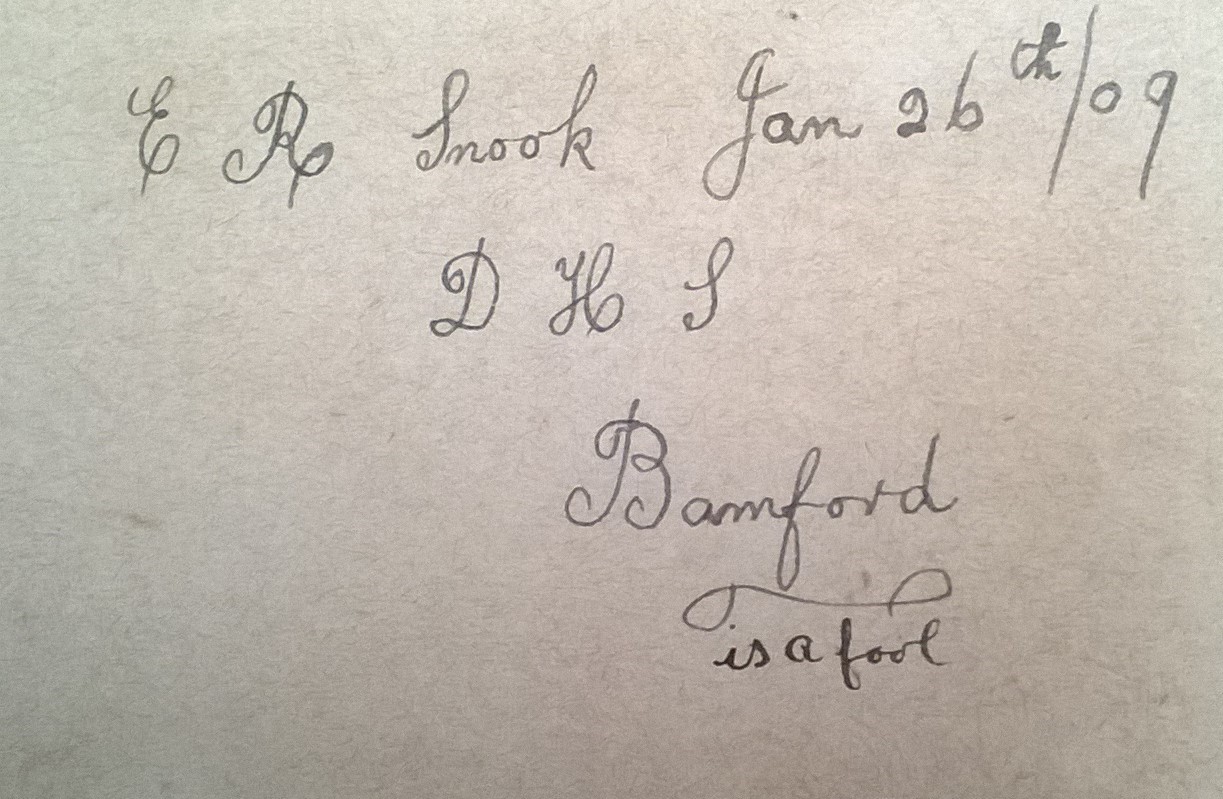 E R Snook Jan 26th/09
D H S
Bamford
is a fool